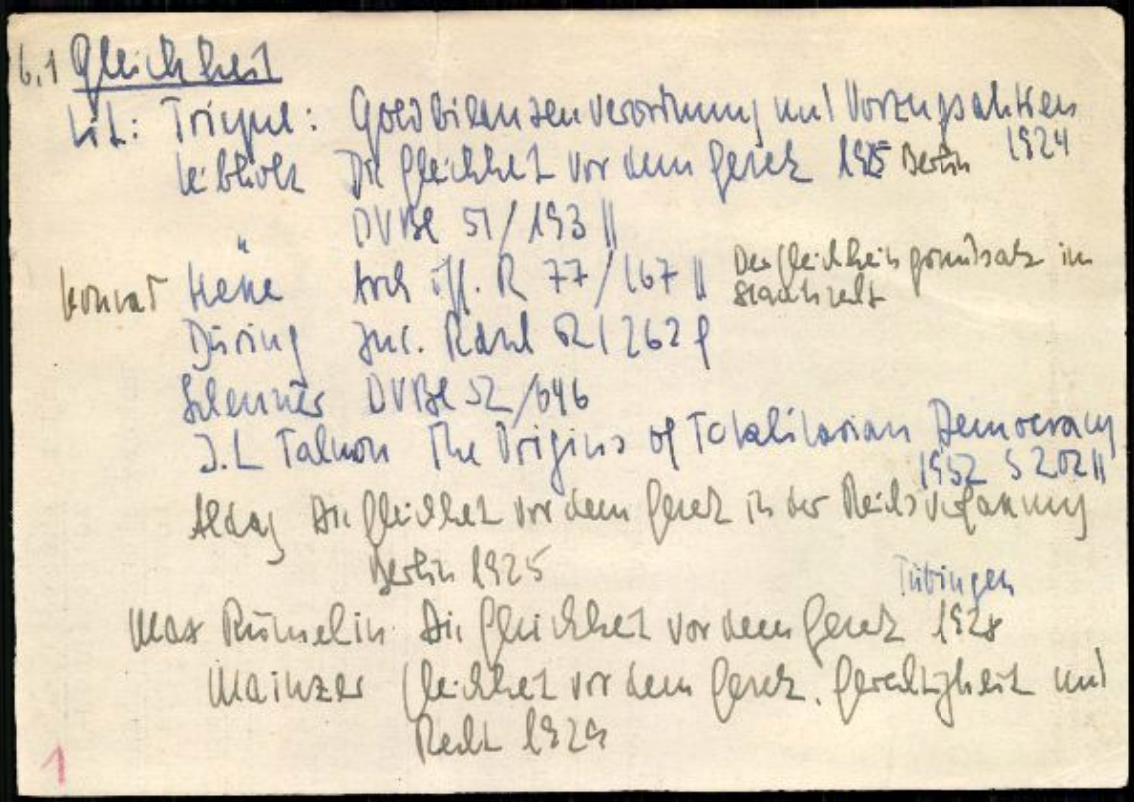 6,1 Gleichheit
Lit.: Triepel: Goldbilanzenverordnung und Vorzugsaktien
1924
Leibholz Die Gleichheit vor dem Gesetz 1925 Berlin
" DVBl 51/193 ||
Konrad Hesse Arch öff. R 77/167 || Der Gleichheitsgrundsatz im
Staatsrecht
Düring Jur. Rdsch 52/262 f
DVBl 52/646
J.L Talmon The Origins of Totalitarian Democracy
1952 S 202 ||
Aldag Die Gleichheit vor dem Gesetz in der Reichsverfassung
Berlin 1925
Tübingen
Max Rümelin Die Gleichheit vor dem Gesetz 1928
Mainzer Gleichheit vor dem Gesetz, Gerechtigkeit und
Recht 1929
1